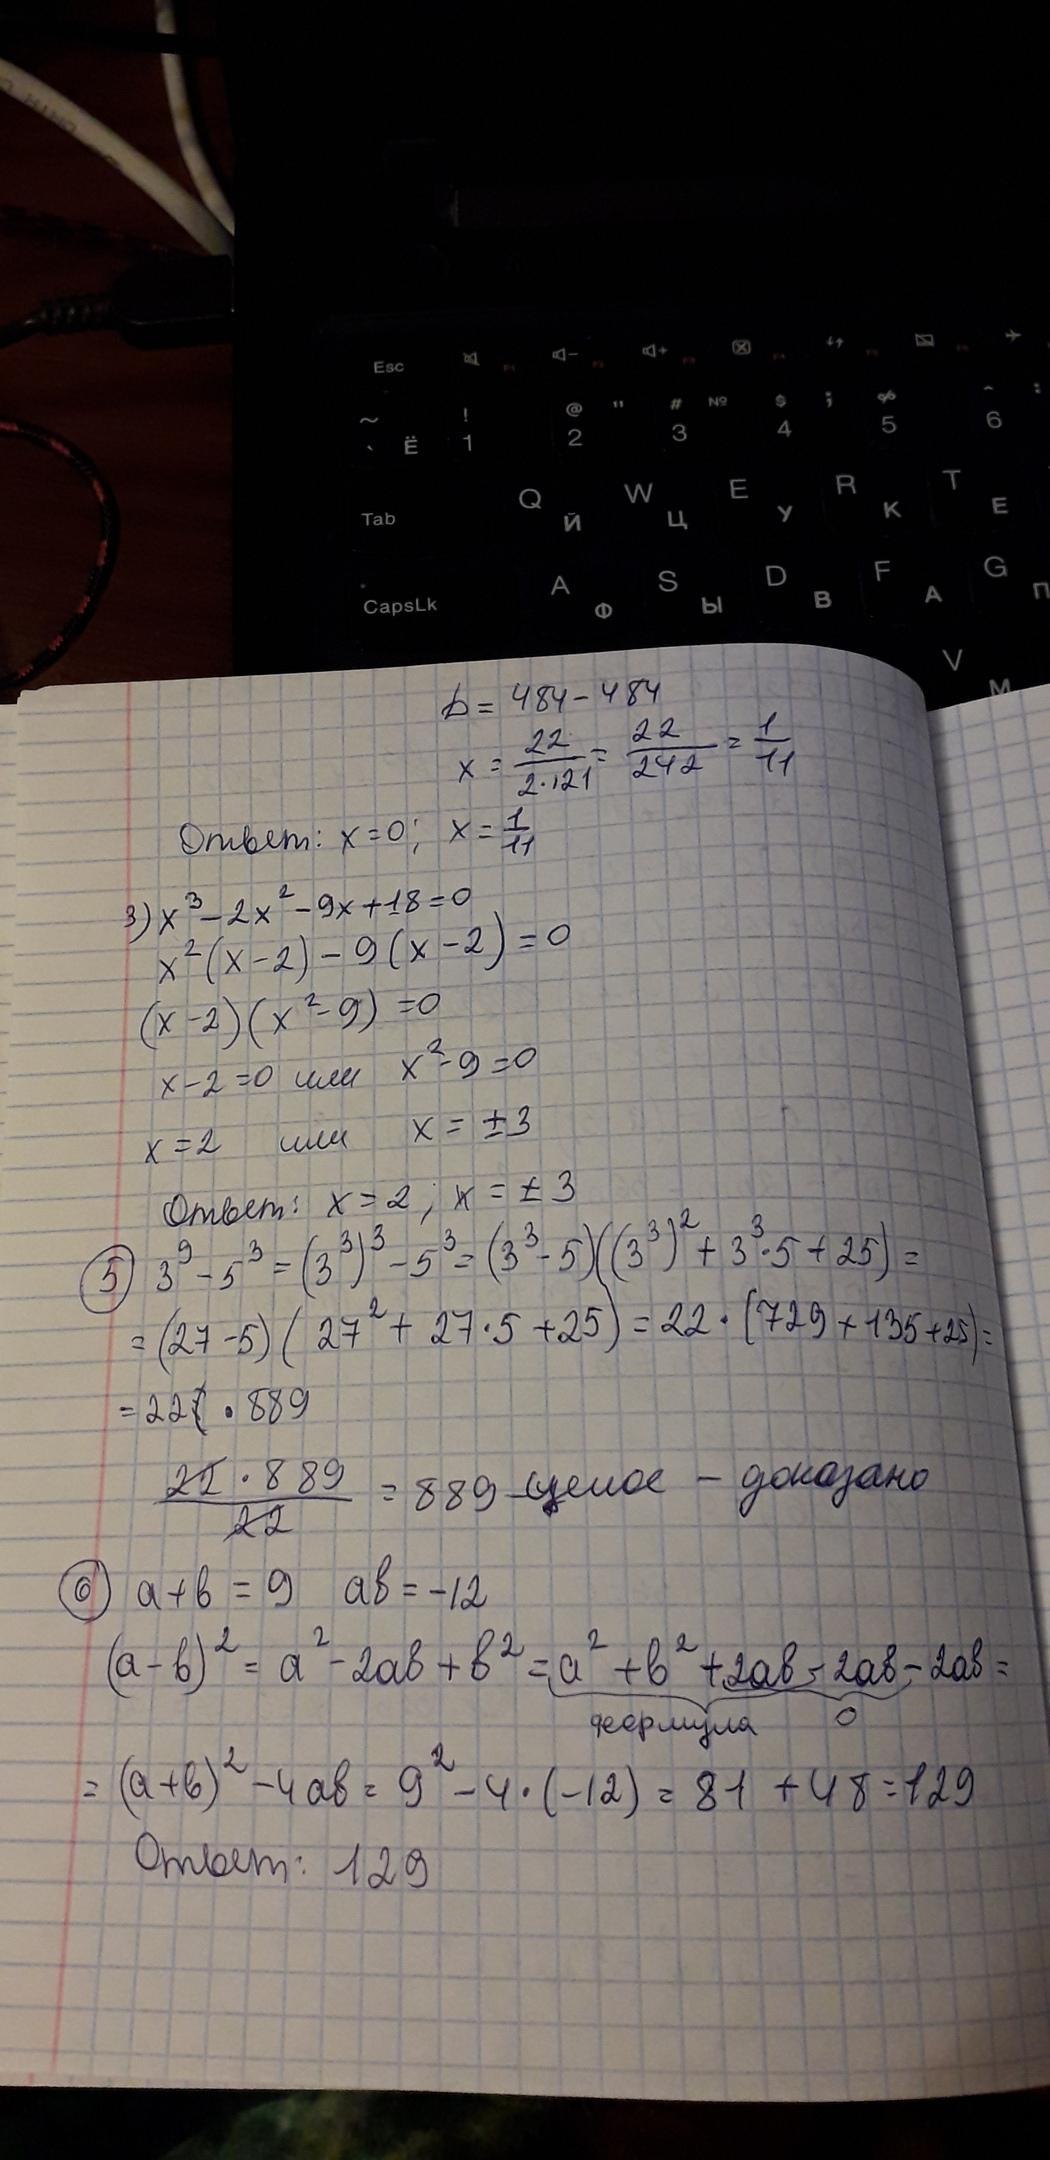 Esc
~ ! @ " # № $ ; %
` Ё 1 2 3 4 5 6
Tab Q Й W Ц E У R К T Е
CapsLk A Ф S Ы D В F А G П
V М
D = 484 - 484
x = 22/2·121 = 22/242 = 1/11
Ответ: x = 0; x = 1/11
3) x³ - 2x² - 9x + 18 = 0
x²(x - 2) - 9(x - 2) = 0
(x - 2)(x² - 9) = 0
x - 2 = 0 или x² - 9 = 0
x = 2 или x = ±3
Ответ: x = 2; x = ±3
5 3⁹ - 5³ = (3³)³ - 5³ = (3³ - 5)((3³)² + 3³·5 + 25) =
= (27 - 5)(27² + 27·5 + 25) = 22·(729 + 135 + 25) =
= 22 · 889
22·889/22 = 889 - целое - доказано
6 a + b = 9 ab = -12
(a - b)² = a² - 2ab + b² = a² + b² + 2ab - 2ab - 2ab =
формула 0
= (a + b)² - 4ab = 9² - 4·(-12) = 81 + 48 = 129
Ответ: 129